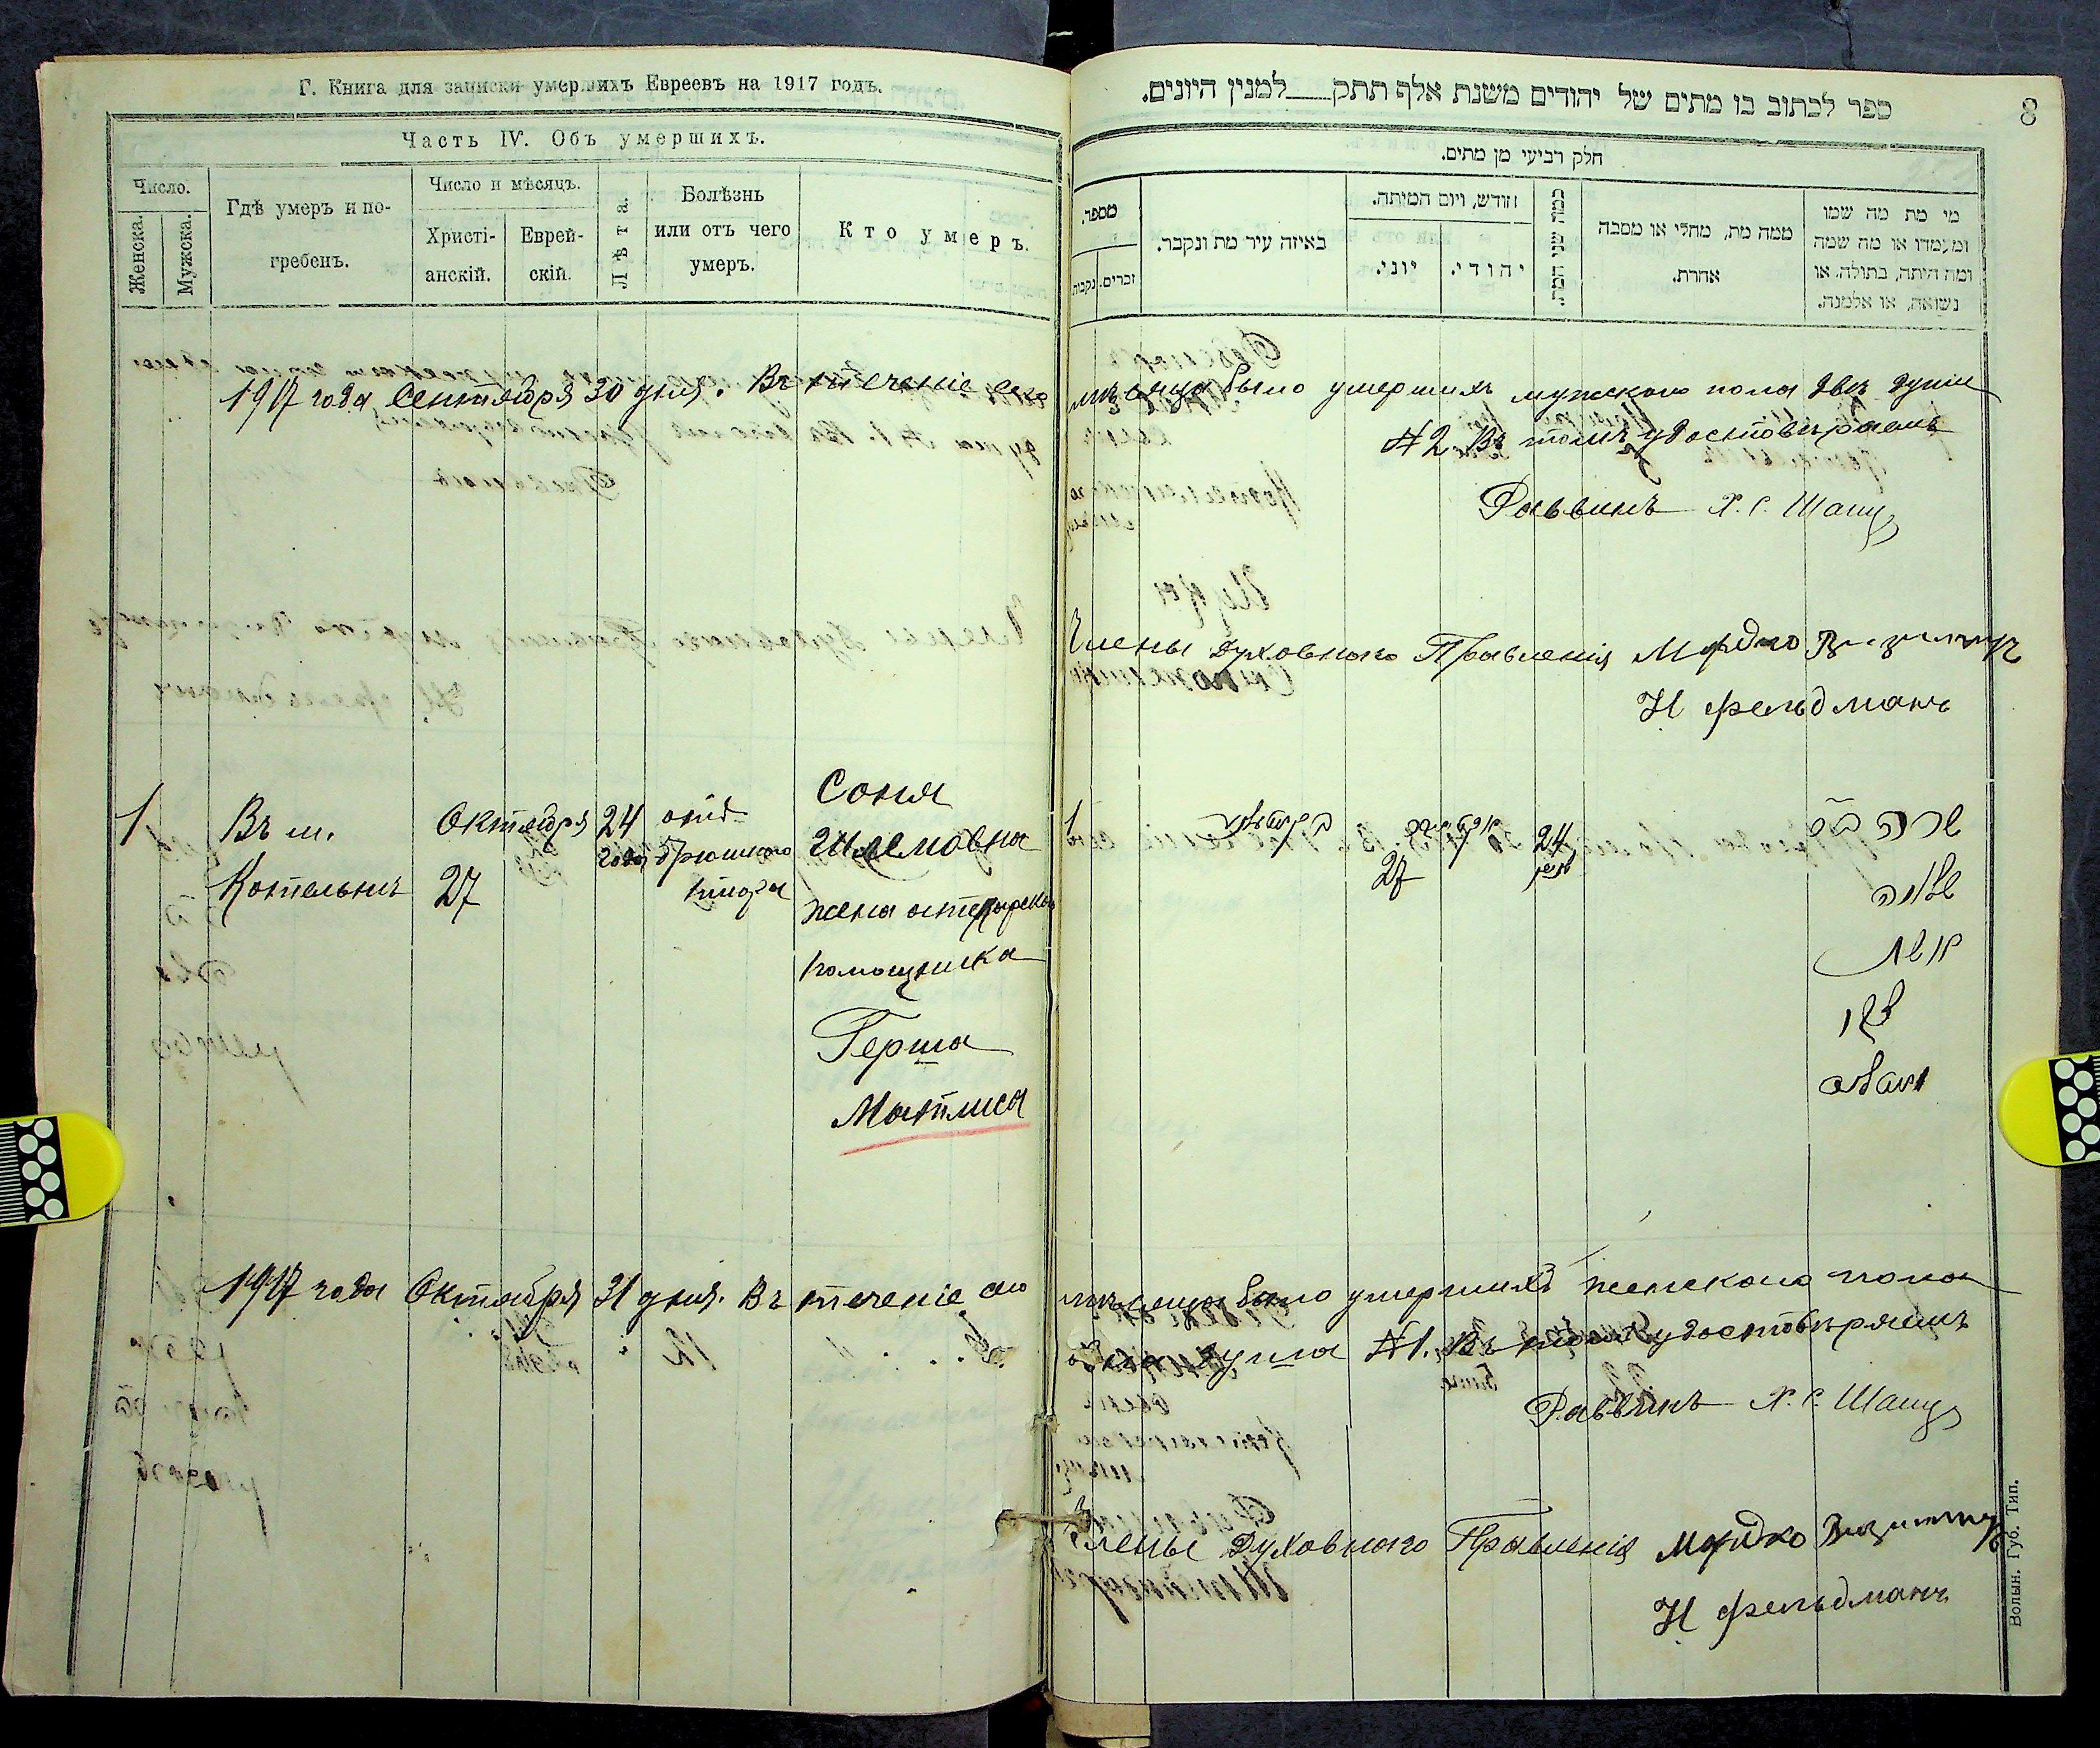 Г. Книга для записки умершихъ Евреевъ на 1917 годъ.
Часть IV. Объ умершихъ.
Число.
Женска.
Мужска.
Гдѣ умеръ и по-
гребенъ.
Число и мѣсяцъ.
Христі-
анскій.
Еврей-
скій.
Лѣта.
Болѣзнь
или отъ чего
умеръ.
Кто умеръ.
1917 года Сентября 30 дня. Въ теченіе сего
1
Въ м.
Котельнѣ
Октября
27
24
года
отъ
брюшного
тифа
Соня
Шлемовна
жена аптекарскаго
помощника
Герша
Матлиса
1917 года Октября 31 дня. Въ теченіе сего
ספר לכתוב בו מתים של יהודים משנת אלף תתק ___ למנין היונים.
8
חלק רביעי מן מתים.
מספר.
נקבות.
זכרים.
באיזה עיר מת ונקבר.
חודש, ויום המיתה.
יוני.
יהודי.
כמה שני המת.
ממה מת, מחלי או מסבה
אחרת.
מי מת מה שמו
ומעמדו או מה שמה
ומה היתה, בתולה, או
נשואה, או אלמנה.
мѣсяца было умершихъ мужского пола двѣ души
№2. Въ томъ удостовѣряемъ
Раввинъ Х. С. Шацъ
Члены Духовнаго Правленія Мордко
Н Фельдманъ
1
27
24
שרה בת
שלמה
אשת
הערש
מאטליס
мѣсяца было умершихъ женскаго пола
одна душа №1. Въ томъ удостовѣряемъ
Раввинъ Х. С. Шацъ
Члены Духовнаго Правленія Мордко
Н Фельдманъ
Волын. Губ. Тип.